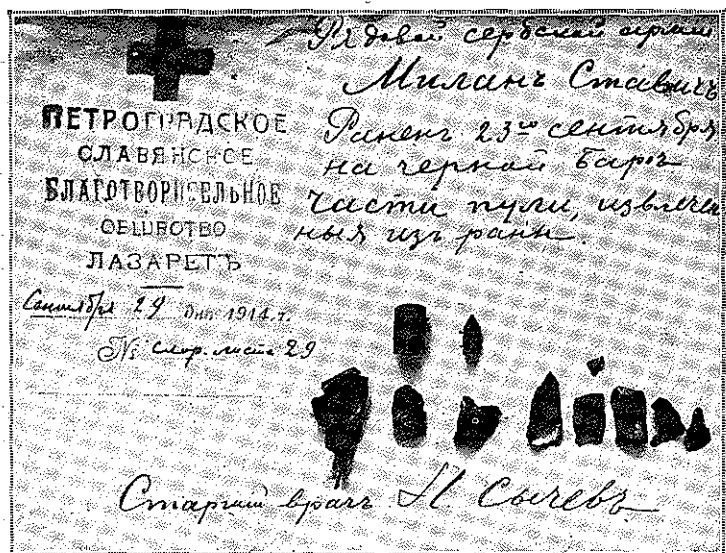 ПЕТРОГРАДСКОЕ
СЛАВЯНСКОЕ
БЛАГОТВОРИТЕЛЬНОЕ
ОБЩЕСТВО
ЛАЗАРЕТЪ
Сентября 29 дня 1914 г.
№ скор. листа 29
Рядовой сербской армии
Миланъ Ставичъ
Раненъ 23го сентября
на черной Баръ
части пули, извлечен
ныя изъ раны.
Старший врачъ Н Сычевъ